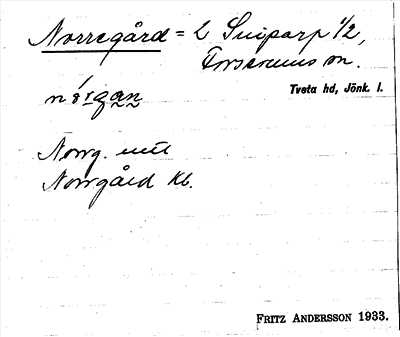 Norregård = L Suiparp 1/2,
Forserums sn.
Tveta hd, Jönk. l.
Norrg. uttl
Norrgård Kb.
FRITZ ANDERSSON 1933.